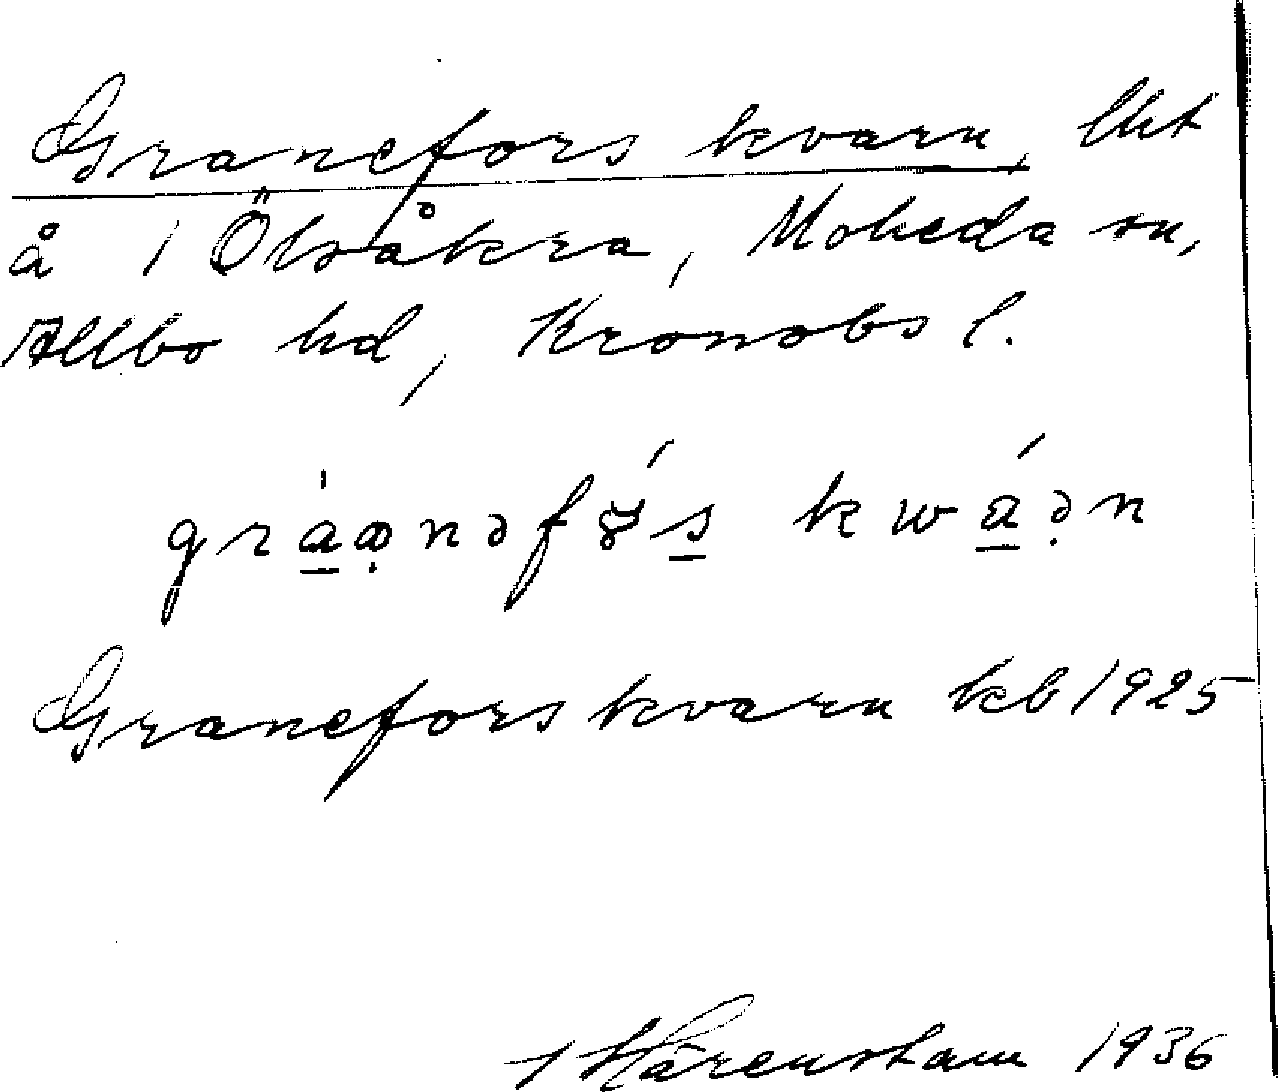 Granefors kvarn, lht
å 1 Ölsåkra, Moheda sn,
Allbo hd, Kronobs l.
gràanəfɤ́s kwáən
Granefors kvarn kb 1925
Härenstam 1936